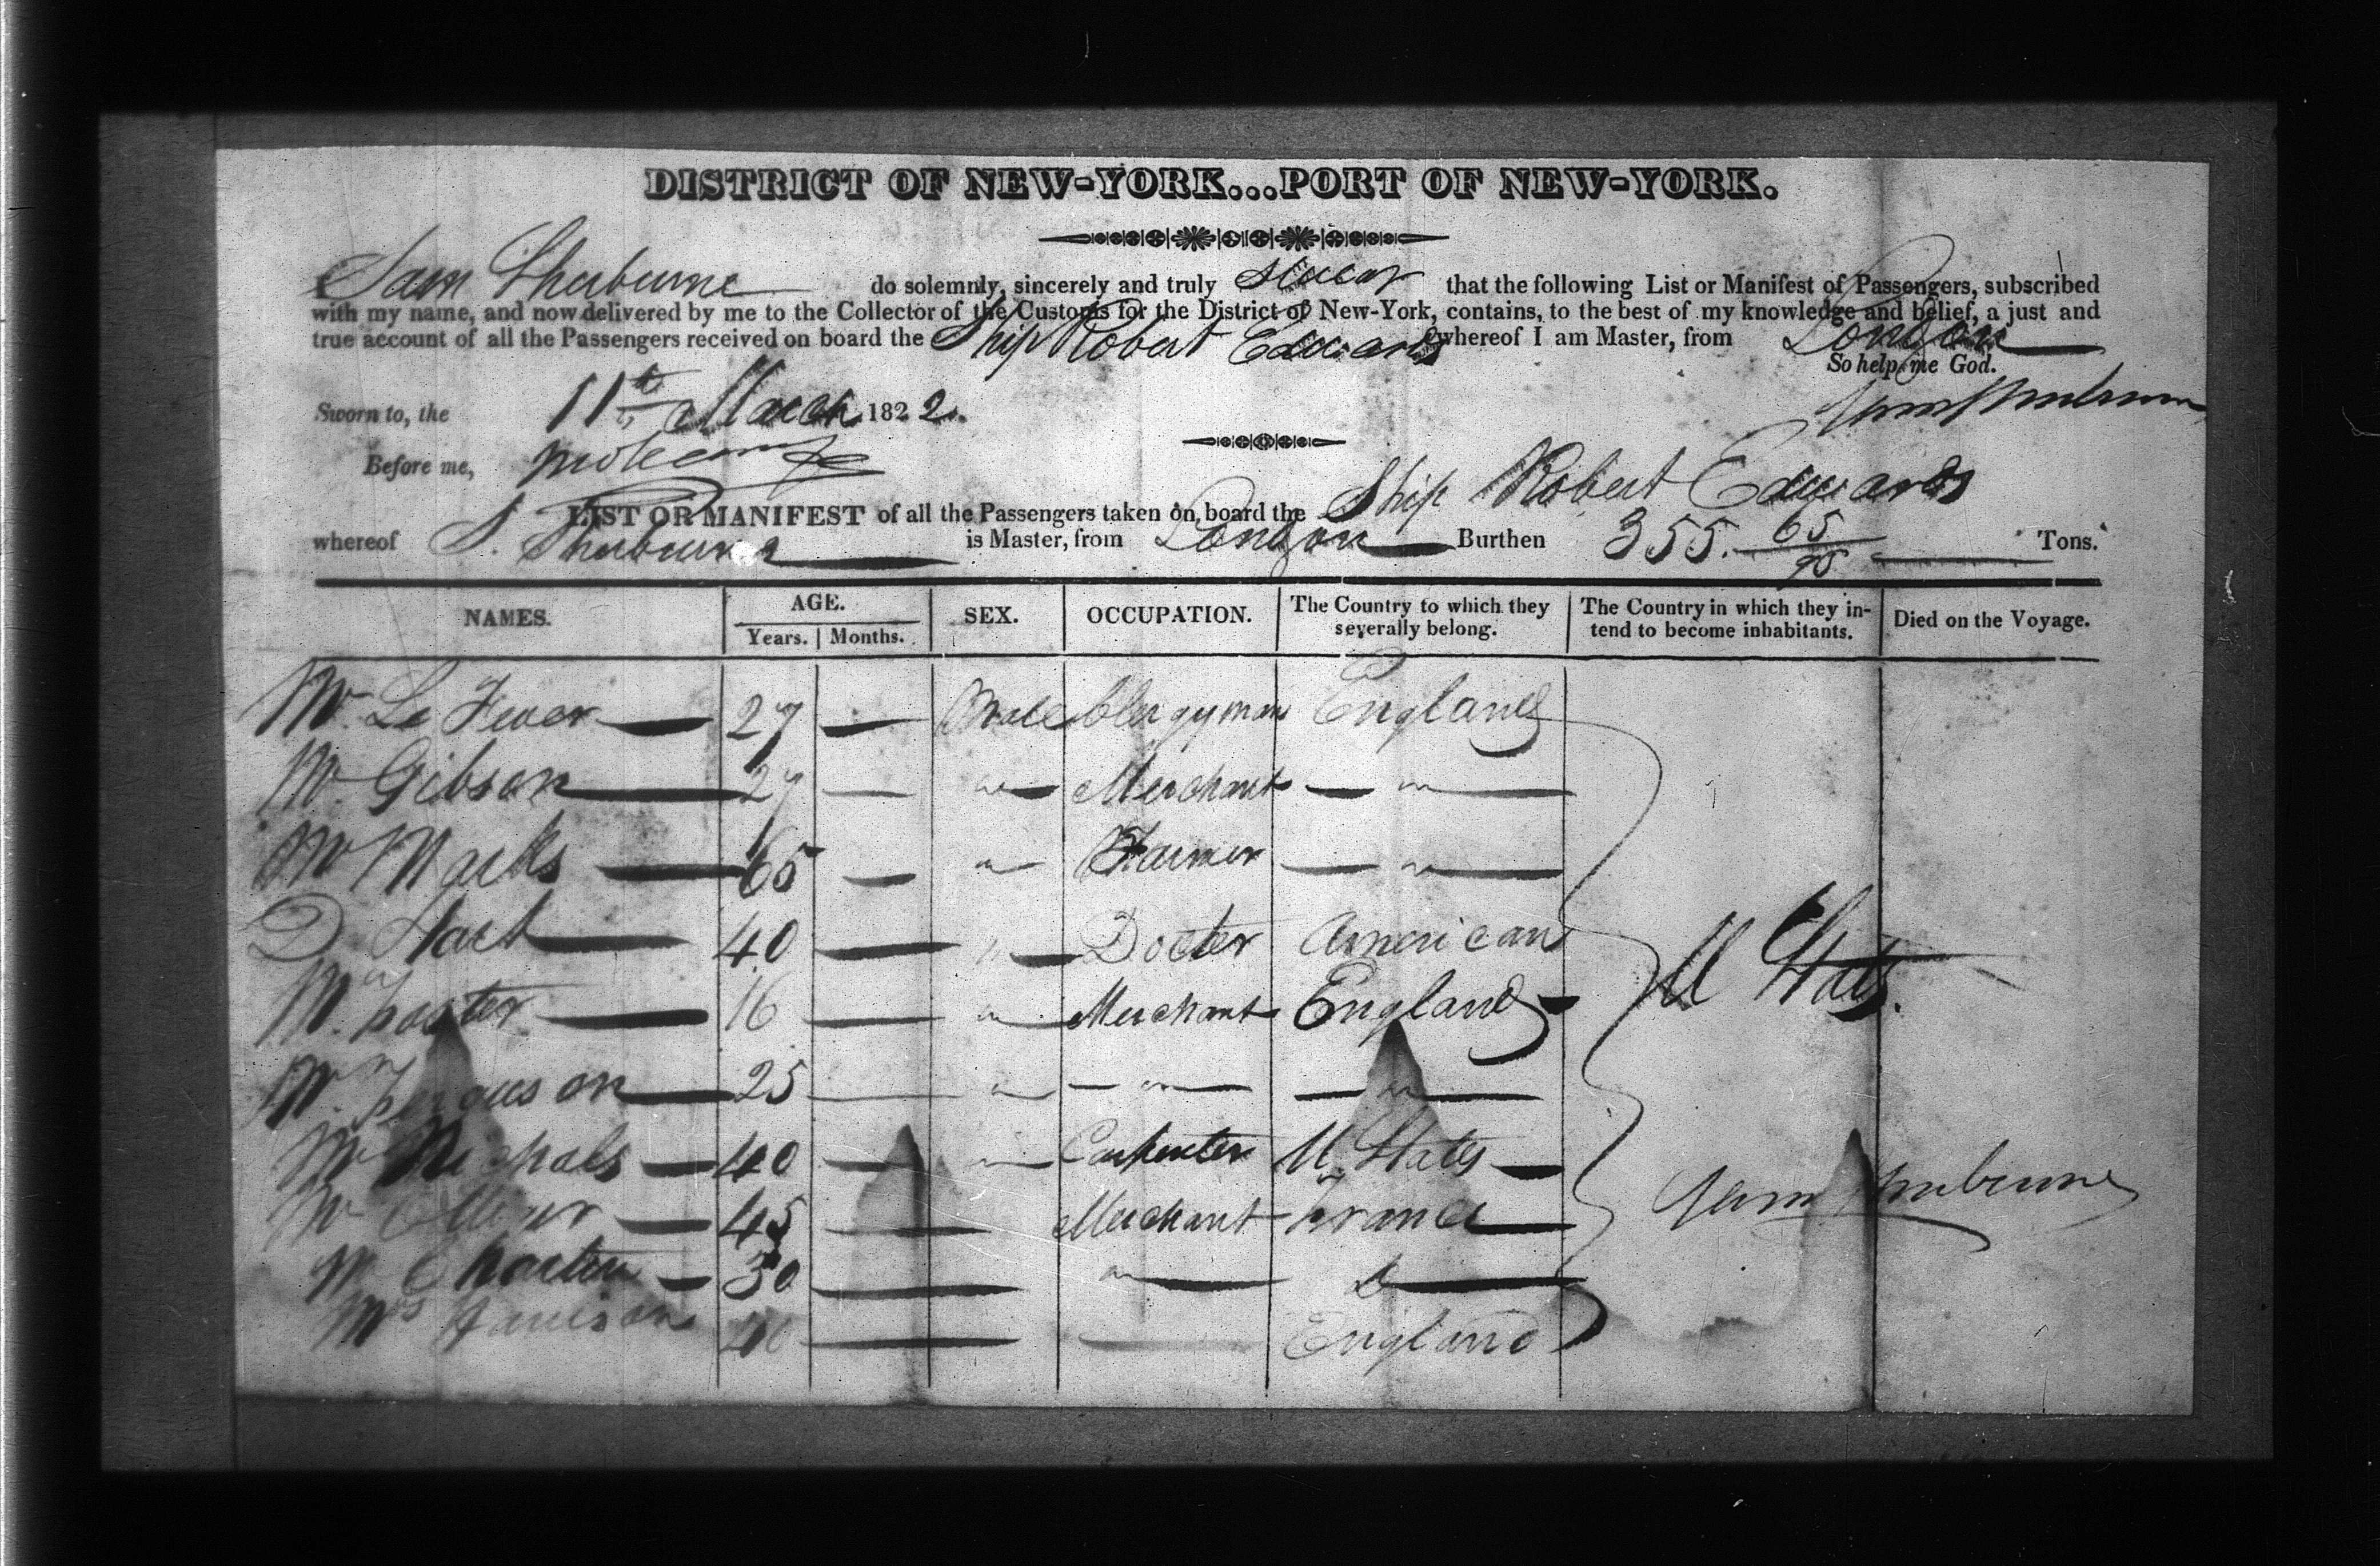 DISTRICT OF NEW-YORK...PORT OF NEW-YORK.
I Sam Sherburne do solemnly, sincerely and truly swear that the following List or Manifest of Passengers, subscribed
with my name, and now delivered by me to the Collector of the Customs for the District of New-York, contains, to the best of my knowledge and belief, a just and
true account of all the Passengers received on board the Ship Robert Edwards whereof I am Master, from London
So help me God.
Sworn to, the 11th March 1822.
Sam Sherburne
Before me,
LIST OR MANIFEST of all the Passengers taken on board the Ship Robert Edwards
whereof S. Sherburne is Master, from London Burthen 355. 65/95 Tons.
NAMES. AGE. Years. Months. SEX. OCCUPATION. The Country to which they severally belong. The Country in which they intend to become inhabitants. Died on the Voyage.
Mr. Le Fever 27 — Male Clergyman England
Mr. Gibson 27 — " Merchant — " —
Mr Marks 65 — " Farmer — " —
D. Hart 40 — " Docter American
U States.
Mr. Foster 16 — " Merchant England
Mr. Ferguson 25 — " — " — — " —
Mr Nichols 40 — " Carpenter U. States
Mr 45 — Merchant France
Sam Sherburne
Mr 30 — " —
Mrs Harrison 40 — — England